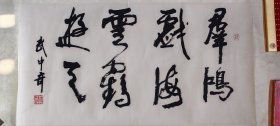 群鴻
戲海
雲鶴
遊天
武中奇